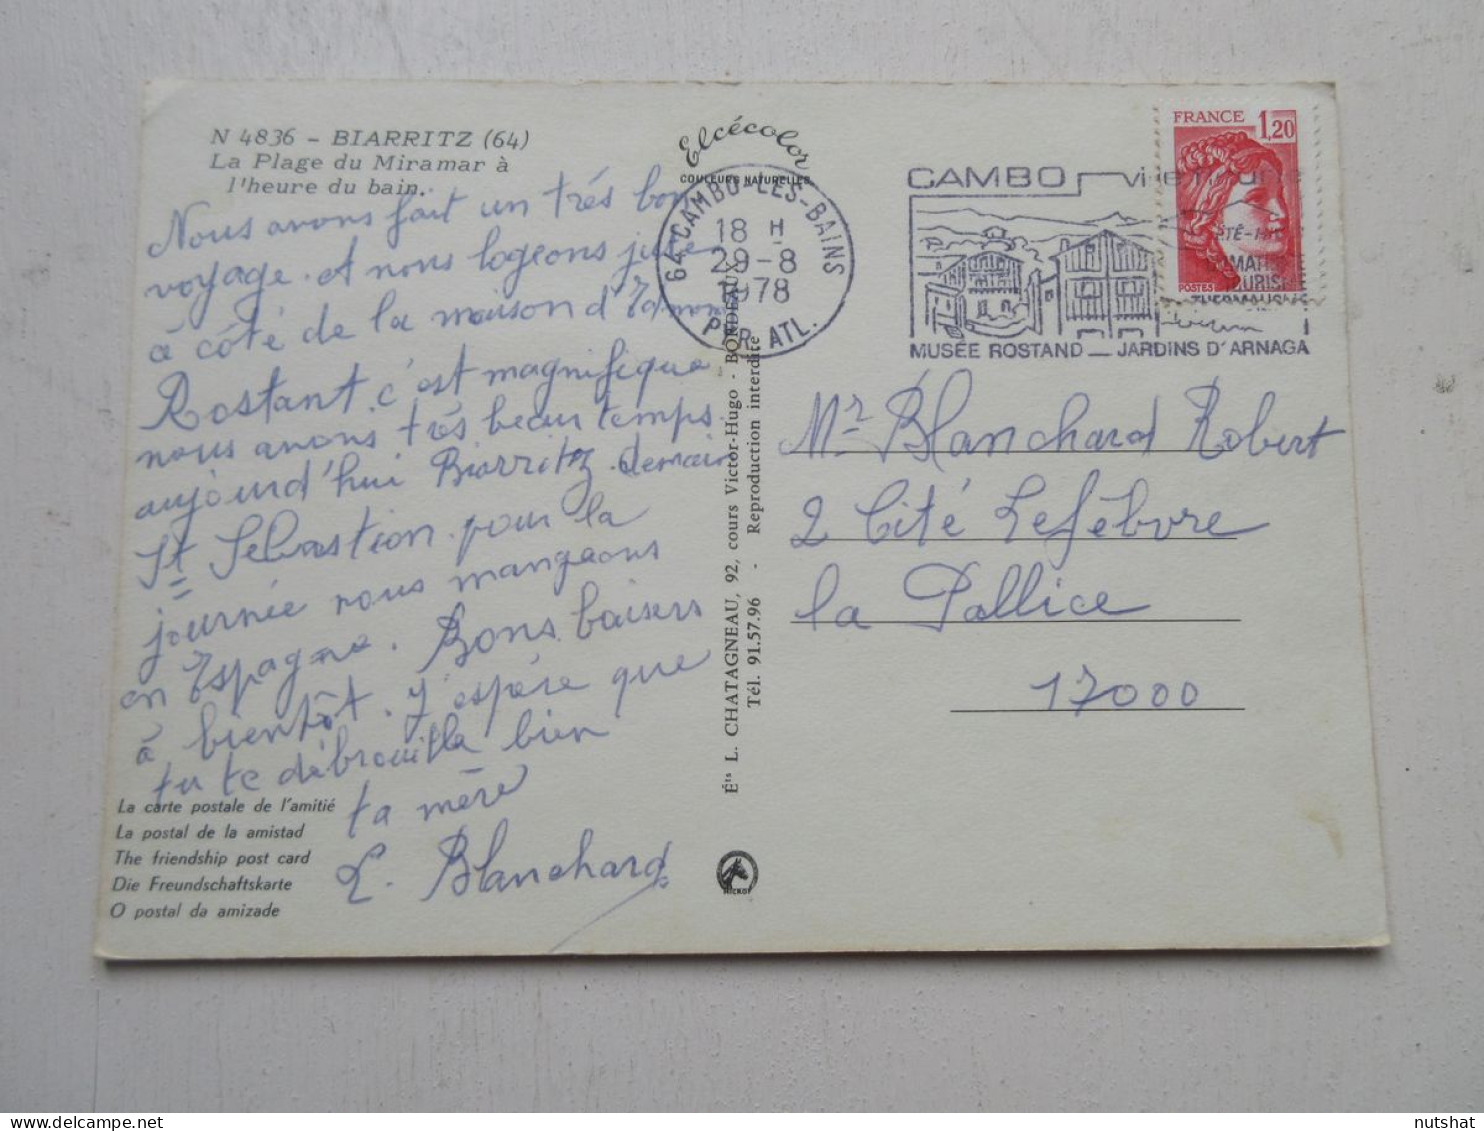 N 4836 - BIARRITZ (64)
La Plage du Miramar à
l'heure du bain.
Nous avons fait un trés bon
voyage. et nous logeons juste
à côté de la maison d'Edmond
Rostant. c'est magnifique
nous avons très beau temps.
aujourd'hui Biarritz. demain
St Sébastien. pour la
journée nous mangeons
en Espagne. Bons baisers
à bientôt. J'espére que
tu te débrouille bien
ta mère
E. Blanchard
La carte postale de l'amitié
La postal de la amistad
The friendship post card
Die Freundschaftskarte
O postal da amizade
Elcécolor
COULEURS NATURELLES
64 CAMBO-LES-BAINS
18 H
29-8
1978
PYR. ATL.
Éts L. CHATAGNEAU, 92, cours Victor-Hugo - BORDEAUX
Tél. 91.57.96 - Reproduction interdite
CAMBO
MUSÉE ROSTAND _ JARDINS D'ARNAGA
FRANCE 1,20
POSTES
Mr Blanchard Robert
2 Cité Lefèbvre
la Pallice
17000
nutshat